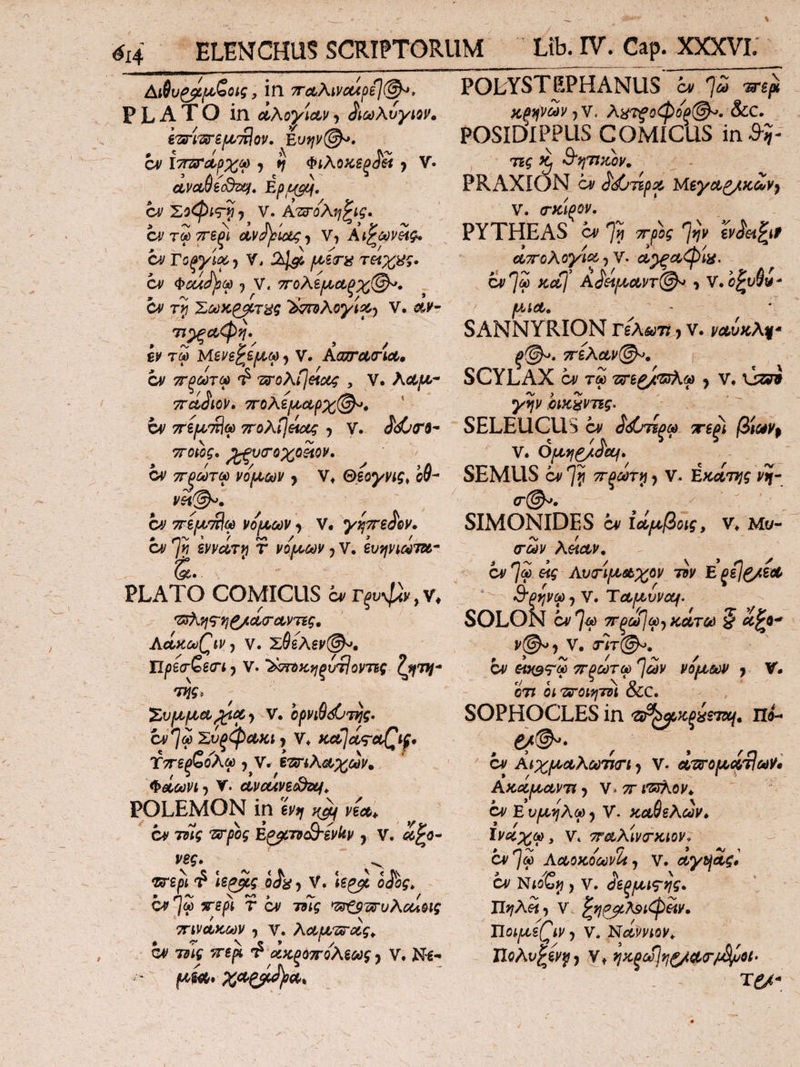 614 ELENCHUS SCRIPTORUM Lib. IV. Cap. XXXVI.
Διθυράμβοις, in παλιναίρετος.
PLATO in ἀλογίαν, διωλύγιον.
ἐπίπεμπτον. Εὐην
ἐν Ἱππάρχῳ, ἢ Φιλοκερδεῖ, V.
ἀναθέσθαι. Ἑρμαῖ.
ἐν Σοφιστῇ, V. Ἀπόληξις.
ἐν τῷ περὶ ἀνδρίας, V, Αἰξωνεῖς.
ἐν Γοργίᾳ, V. Διὰ μέσου τείχους.
ἐν Φαίδρῳ, V. πολέμαρχος.
ἐν τῇ Σωκράτους ἀπολογίᾳ, V. ἀν-
τιγραφή.
ἐν τῷ Μενεξέμῳ, V. Ἀσπασία.
ἐν πρώτῳ τῆς πολιτείας, V. λαμ-
πάδιον. πολέμαρχος.
ἐν πέμπτῳ πολιτείας, V. δευσο-
ποιός. χρυσοχοεῖον.
ἐν πρώτῳ νόμων, V. Θέογνις. ὀθ-
νεῖος.
ἐν πέμπτῳ νόμων, V. γήπεδον.
ἐν τῇ ἐννάτῃ τῶν νόμων, V. εὐηνιώτα-
τα.
PLATO COMICUS ἐν Γρυψὶν, V.
πλησιάσαντες.
Λάκωσιν, V. Σθέλενος.
Πρέσβεσι, V. ἀποκηρύττοντες ζητη-
τής.
Συμμαχίᾳ, V. ὀρνιθευτής.
ἐν τῷ Σύρφακι, V. κατάστασις.
Ὑπερβόλῳ, V. ἐπιλαχών.
Φάωνι, V. ἀνανεοῦσθαι.
POLEMON in ἕνη καὶ νέα.
ἐν τοῖς πρὸς Ἐρατοσθένην, V. ἄξο-
νες.
περὶ τῆς ἱερᾶς ὁδοῦ, V. ἱερὰ ὁδός.
ἐν τῷ περὶ τῶν ἐν τοῖς προπυλαίοις
πινάκων, V. λαμπάς.
ἐν τοῖς περὶ τῆς ἀκροπόλεως, V. Νε-
μέα. χαράδρα.
POLYSTEPHANUS ἐν τῷ περὶ
κρηνῶν, V. λουτροφόρος. &c.
POSIDIPPUS COMICUS in θῆ-
τες καὶ θητικόν.
PRAXION ἐν δευτέρᾳ Μεγαρικῶν,
V. σκίρον.
PYTHEAS ἐν τῇ πρὸς τὴν ἔνδειξιν
ἀπολογίᾳ, V. ἀγραφίου.
ἐν τῷ κατ' Ἀδείμαντος, V. ὀξυθύ-
μια.
SANNYRION Γέλωτι, V. ναύκλη-
ρος. πέλανος.
SCYLAX ἐν τῷ περίπλῳ, V. ὑπὸ
γῆν οἰκοῦντες.
SELEUCUS ἐν δευτέρῳ περὶ βίων,
V. Ὁμηρίδαι.
SEMUS ἐν τῇ πρώτῃ, V. Ἑκάτης νῆ-
σος.
SIMONIDES ἐν Ἰάμβοις, V. Μυ-
σῶν λείαν.
ἐν τῷ εἰς Λυσίμαχον τὸν Ἐρετριέα
θρήνῳ, V. Ταμύναι.
SOLON ἐν τῷ πρώτῳ, κάτω τοῦ ἄξο-
νος, V. σῖτος.
ἐν εἰκοστῷ πρώτῳ τῶν νόμων, V.
ὅτι οἱ ποιητοὶ &c.
SOPHOCLES in παρακρούεται. Πό-
ριος.
ἐν Αἰχμαλώτισι, V. ἀπομάττων.
Ἀκάμαντι, V. π ιπλον.
ἐν Εὐμήλῳ, V. καθελών.
Ἰνάχῳ, V. παλίνσκιον.
ἐν τῷ Λαοκόωντι, V. ἀγυιάς.
ἐν Νιόβῃ, V. δερμιστής.
Πηλεῖ, V. ξηραλοιφεῖν.
Ποιμέσιν, V. Νάννιον.
Πολυξένῃ, V. ἠκρωτηριασμένοι.
Τρι-